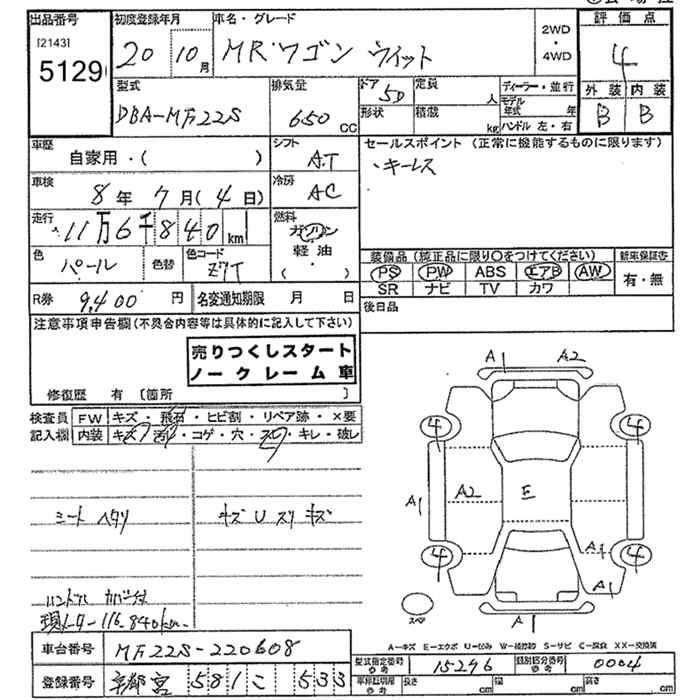 出品番号
[2143]
5129
初度登録年月
20 10月
車名・グレード
MRワゴン ウィット
2WD
・
4WD
評価点
4
外装 内装
B B
型式
DBA-MF22S
排気量
650 cc
ドア
5D
形状
定員
人
積蔵
kg
ディーラー・並行
モデル年式 年
ハンドル 左・右
車歴
自家用・( )
シフト
AT
セールスポイント (正常に機能するものに限ります)
・キーレス
車検
8年 7月(4日)
冷房
AC
走行
11万6千840km
燃料
ガソリン
軽油
( ・ )
色
パール
色替
色コード
Z7T
装備品(純正品に限り〇をつけてください)
PS PW ABS エアB AW
SR ナビ TV カワ
新車保証書
有・無
R券 9,400円
名変通知期限 月 日
後日品
注意事項申告欄(不具合内容等は具体的に記入して下さい)
売りつくしスタート
ノークレーム車
修復歴 有〔箇所 〕
検査員
記入欄
FW キズ・飛石・ヒビ割・リペア跡・×要
内装 キズ・汚れ・コゲ・穴・スレ・キレ・破レ
シートヘタリ
キズ U スリ キズ
ハンドル カバー付
現メーター 116,840km
A1 A2
4 4
A1 A2 E
4 4 A1
A1
スペア
A1
A=キズ E=エクボ U=凹み W=補修跡 S=サビ C=腐食 XX=交換済
車台番号 MF22S-220608
登録番号 京都 581 こ 533
型式指定番号
参考
15246
類別区分番号
参考
0004
車両証期間
参考
長さ cm
幅 cm
高さ cm